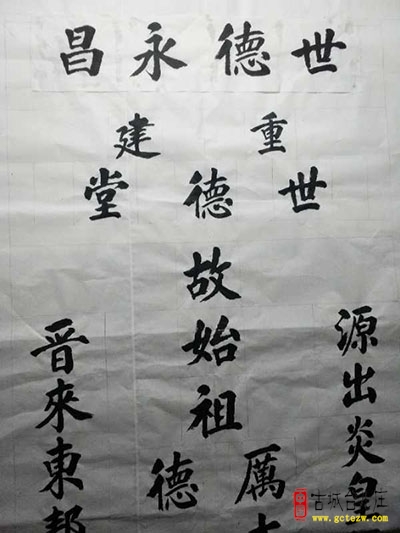 世德永昌
重建
世德堂
源出炎皇
故始祖
厲
德
晋來東邦
古城台庄
www.gctezw.com